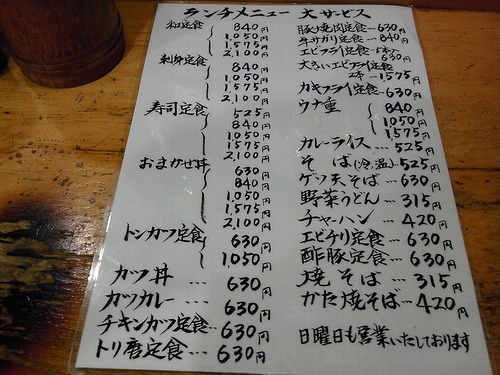 ランチメニュー 大サービス
和定食 840円
1,050円
1,575円
2,100円
刺身定食 840円
1,050円
1,575円
2,100円
寿司定食 525円
840円
1,050円
1,575円
2,100円
おまかせ丼 630円
840円
1,050円
1,575円
2,100円
トンカツ定食 630円
1,050円
カツ丼 … 630円
カツカレー … 630円
チキンカツ定食 … 630円
トリ磨定食 … 630円
豚バ焼肉定食 … 630円
牛サガリ定食 … 840円
エビフライ定食
630円
大きいエビフライ定食
2本 … 1,575円
カキフライ定食 … 630円
ウナ重 840円
1050円
1575円
カレーライス … 525円
そば(冷,温) 525円
ゲソ天そば … 630円
野菜うどん … 315円
チャーハン … 420円
エビチリ定食 … 630円
酢豚定食 … 630円
焼そば … 315円
かた焼そば … 420円
日曜日も営業いたしております